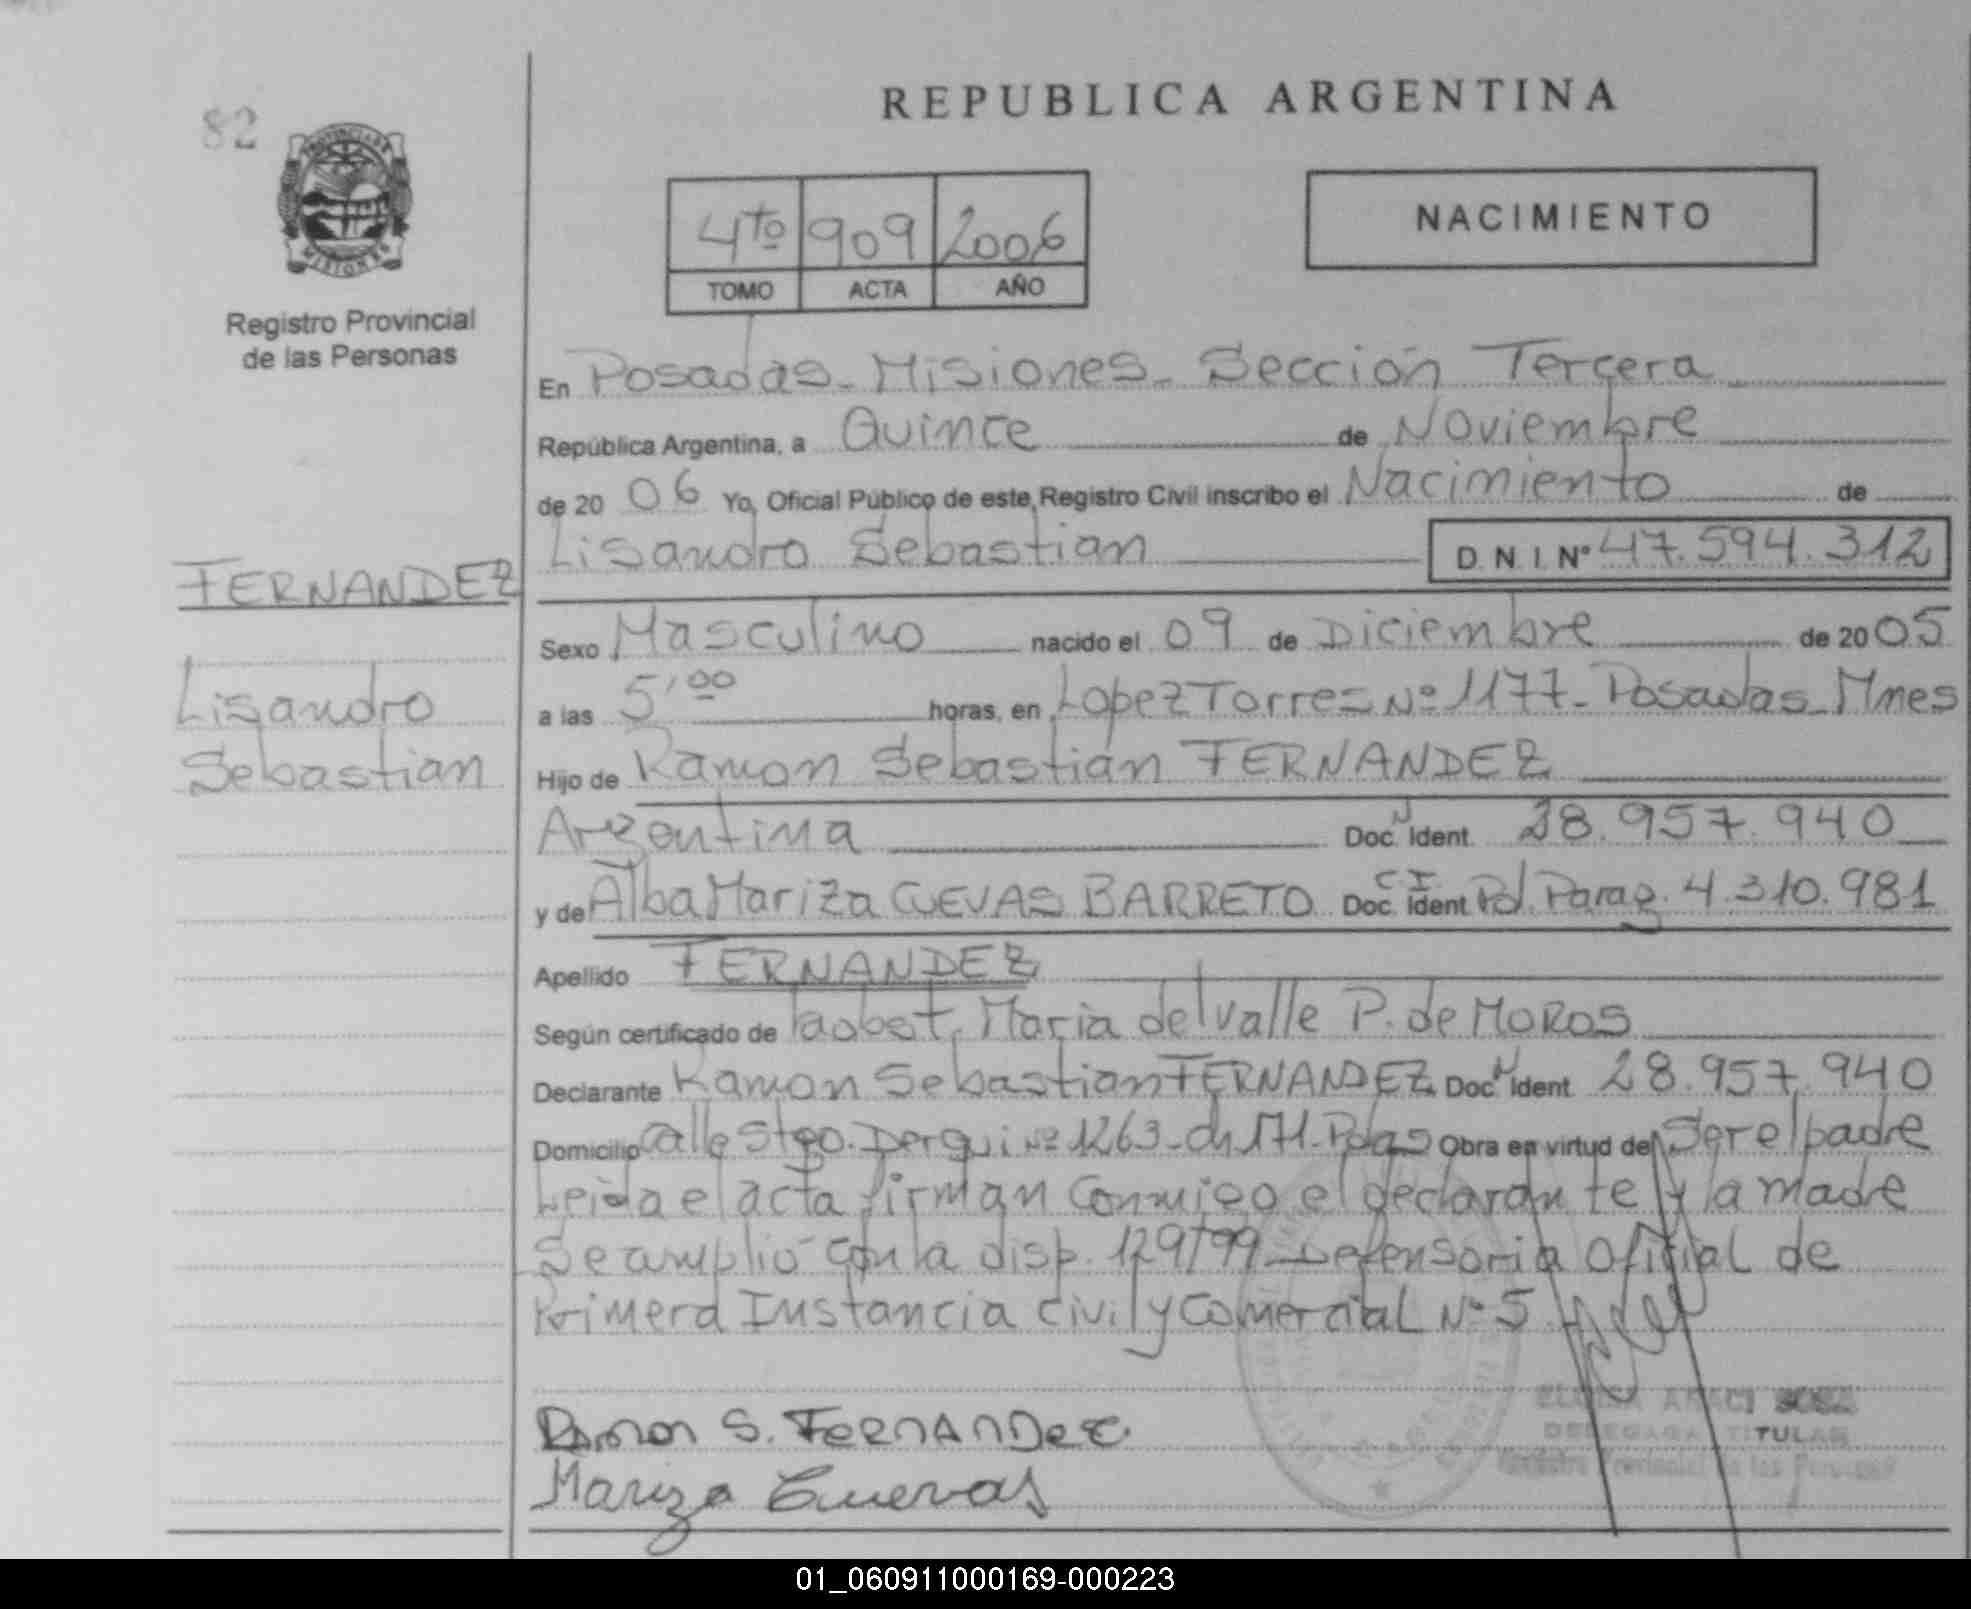 82
REPUBLICA ARGENTINA
PROVINCIA DE MISIONES
Registro Provincial
de las Personas
4to 909 2006
TOMO ACTA AÑO
NACIMIENTO
En Posadas - Misiones - Sección Tercera
República Argentina, a Quince de Noviembre
de 20 06 Yo, Oficial Público de este Registro Civil inscribo el Nacimiento de
Lisandro Sebastian D. N. I. Nº 47.594.312
FERNANDEZ
Lisandro
Sebastian
Sexo Masculino nacido el 09 de Diciembre de 20 05
a las 5'00 horas, en Lopez Torres Nº 1177 - Posadas - Mnes
Hijo de Ramon Sebastián FERNANDEZ
Argentina Doc. N Ident. 28.957.940
y de Alba Mariza CUEVAS BARRETO Doc. Ident C.I. Pol. Parag. 4.310.981
Apellido FERNANDEZ
Según certificado de obst. Maria del valle P. de MOROS
Declarante Ramon Sebastian FERNANDEZ Doc N Ident 28.957.940
Domicilio Calle Stgo. Derqui Nº 1263 - Ch 171 - Pdas Obra en virtud de Ser el padre
Leida el acta firman Conmigo el declarante y la madre
Se amplió con la disp. 129/99 - Defensoria Oficial de
Primera Instancia Civil y Comercial Nº 5
Ramon S. FERNANDEZ
Mariza Cuevas
TITULAR
Registro Provincial de las Personas
01_060911000169-000223